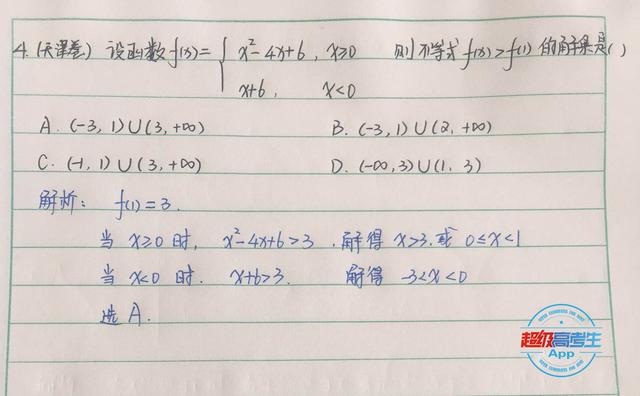 4. (天津卷) 设函数f(x)= { x²-4x+6, x≥0 则不等式f(x)>f(1)的解集是( )
x+6, x<0
A. (-3, 1)∪(3, +∞) B. (-3, 1)∪(2, +∞)
C. (-1, 1)∪(3, +∞) D. (-∞, 3)∪(1, 3)
解析: f(1)=3.
当 x≥0 时, x²-4x+6>3 .解得 x>3.或 0≤x<1
当 x<0 时. x+6>3. 解得 -3<x<0
选 A.
超级高考生
App